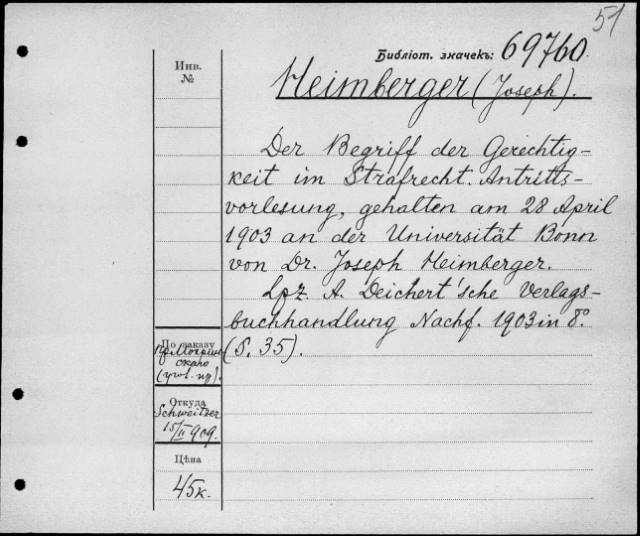 51
Библіот. значекъ: 69760.
Инв.
№
Heimberger (Joseph).
Der Begriff der Gerechtig-
keit im Strafrecht. Antritts-
vorlesung, gehalten am 28 April
1903 an der Universität Bonn
von Dr. Joseph Heimberger.
Lpz. A. Deichert'sche Verlags-
buchhandlung Nachf. 1903 in 8°
(S. 35).
По заказу
Откуда
Schweitzer
15/II 909.
Цѣна
45к.